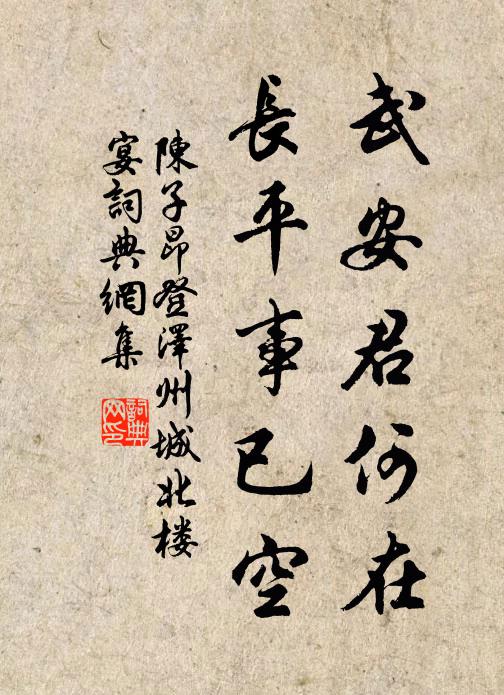 武安君何在
長平事已空
陳子昂登澤州城北楼
宴詞典網集
詞典
网印